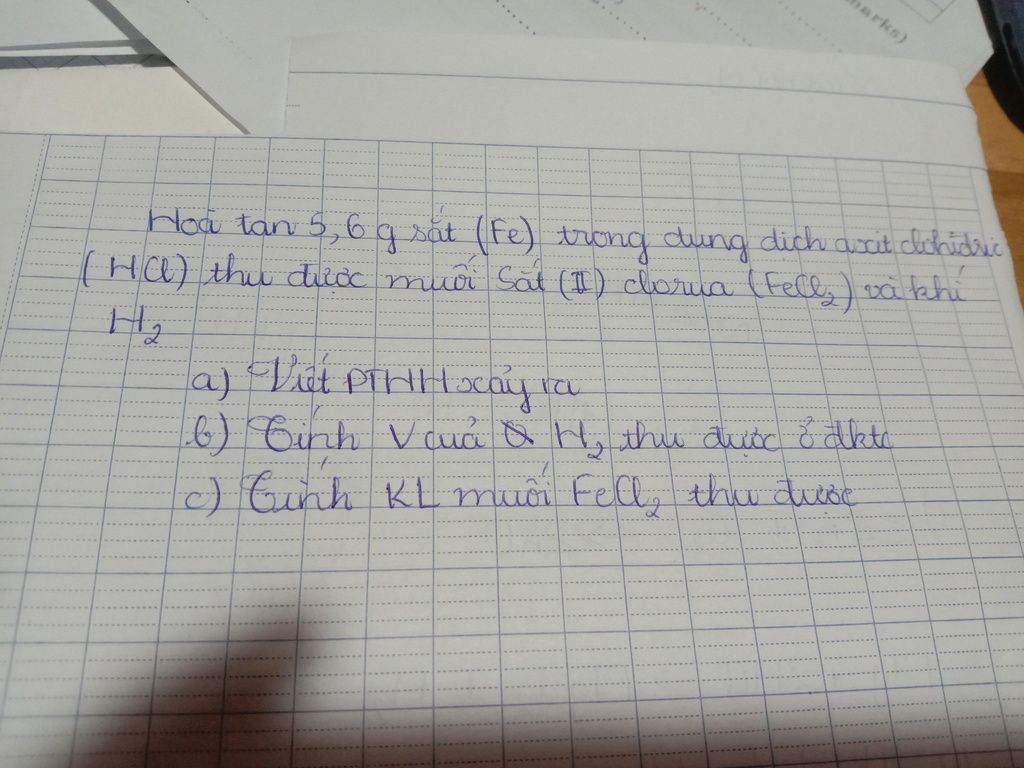 marks)
Hoà tan 5,6 g sắt (Fe) trong dung dịch axit clohidric
(HCl) thu được muối Sắt (II) clorua (FeCl₂) và khí
H₂
a) Viết PTHH xảy ra
b) Tính V của H₂ thu được ở đktc
c) Tính KL muối FeCl₂ thu được